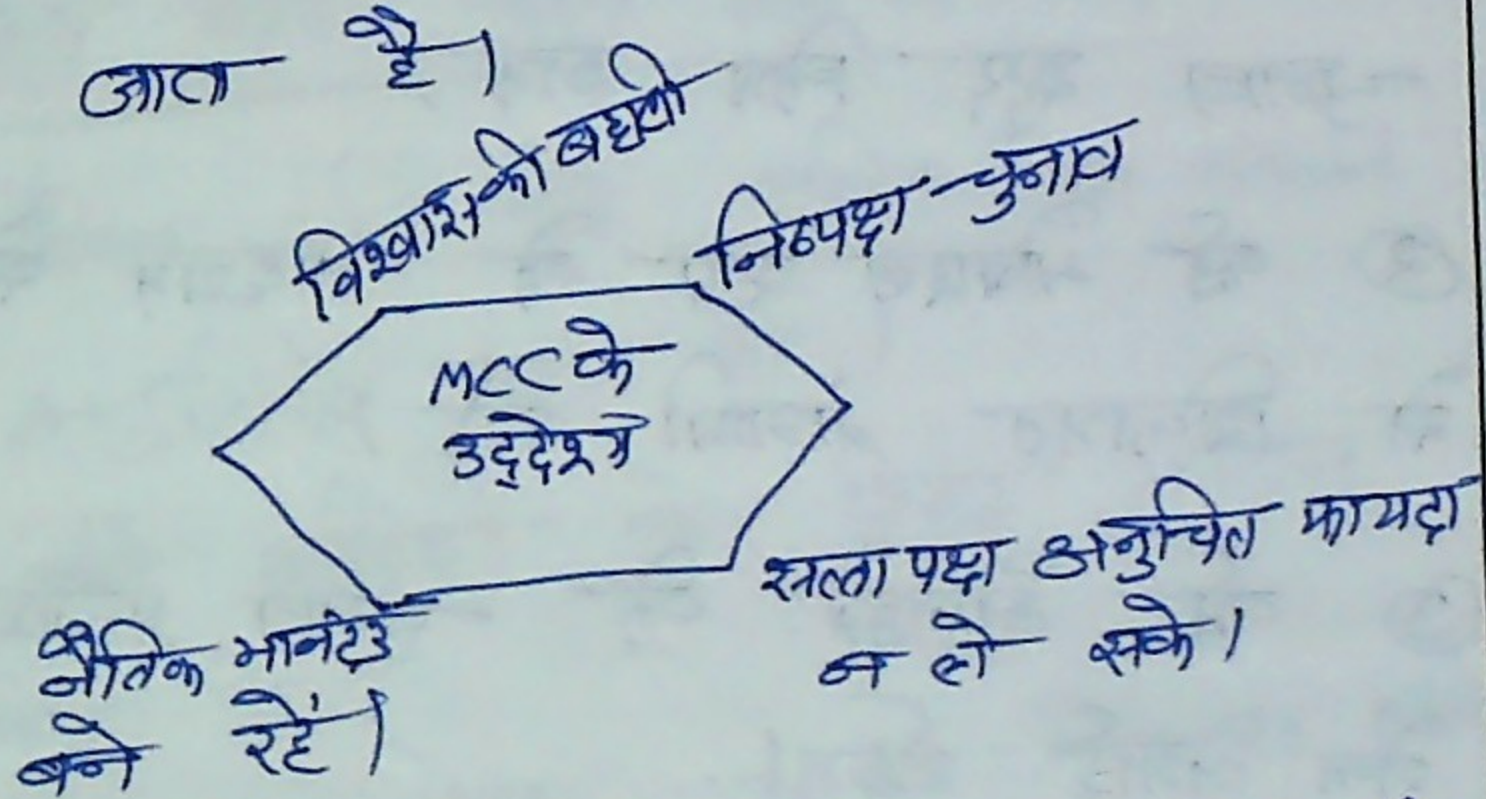 जाता है।
विश्वास को बढ़ाये
निष्पक्ष चुनाव
MCC के
उद्देश्य
सत्ता पक्ष अनुचित फायदा
न ले सके।
नैतिक मानदंड
बने रहें।